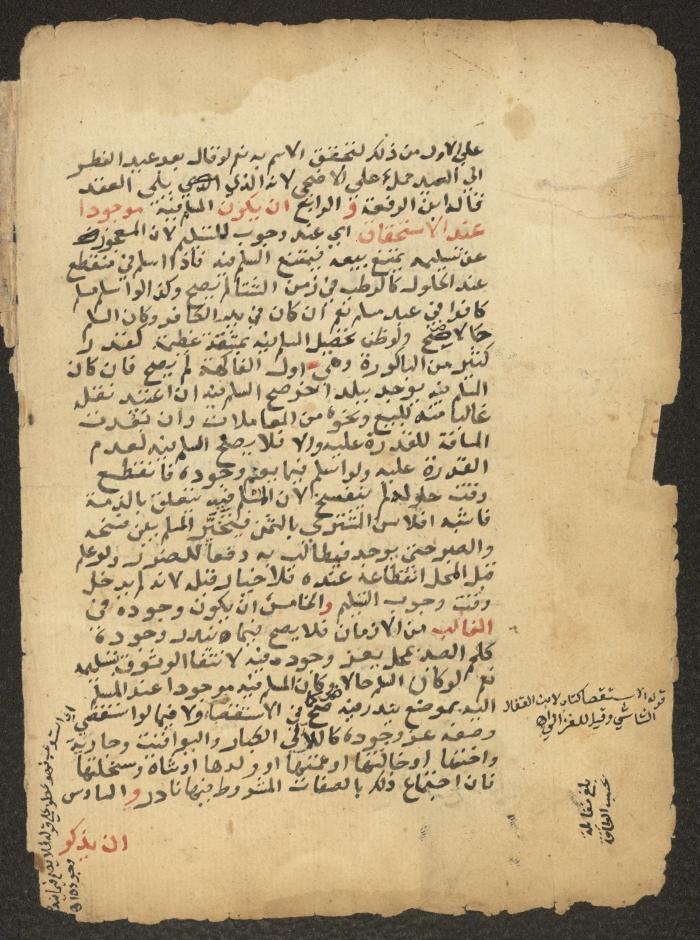 علي الاول من ذلك لتحقق الاسم به نعم لو قال بعد عيد الفطر
الي العيد حمل علي الاضحي لانه الذي يلي العقد
قاله ابن الرفعة و الرابع ان يكون المسلم فيه موجودا
عند الاستحقاق اي عند وجوب التسليم لان المعجوز
عن تسليمه يمتنع بيعه فيمتنع السلم فيه فاذا اسلم في منقطع
عند الحلول كالرطب في زمن الشتا لم يصح وكذا لو اسلم مسلم
كافرا في عبد مسلم نعم ان كان في يد الكافر وكان السلم
حالا صح ولو ظن تحصيل المسلم فيه بمشقة عظيمة كقدر
كثير من الباكورة وهي اول الفاكهة لم يصح فان كان
المسلم فيه يوجد ببلد اخر صح السلم فيه ان اعتيد نقله
غالبا منه للبيع ونحوه من المعاملات وان بعدت
المسافة للقدرة عليه والا فلا يصح السلم فيه لعدم
القدرة عليه ولو اسلم فيما يعم وجوده فانقطع
وقت حلوله لم ينفسخ لان المسلم فيه يتعلق بالذمة
فاشبه افلاس المشتري بالثمن فيتخير المسلم بين فسخه
والصبر حتي يوجد فيطالب به دفعا للضرر ولو علم
قبل المحل انقطاعه عنده فلا خيار قبله لانه لم يدخل
وقت وجوب التسليم والخامس ان يكون وجوده في
الغالب من الازمان فلا يصح فيما يندر وجوده
كلحم الصيد بمحل يعز وجوده فيه لانتفا الوثوق بتسليمه
نعم لو كان السلم حالا وكان المسلم فيه موجودا عند المسلم
اليه بموضع يندر فيه صح كما في الاستقصا ولا فيما لو استقصي
وصفه عز وجوده كاللالي الكبار واليواقيت وجارية
واختها او خالتها او عمتها او ولدها او شاة وسخلتها
فان اجتماع ذلك بالصفات المشروط فيها نادر والسادس
ان يذكر
قوله الاستقصا كتاب لابن القفال
الشاشي وقيل للغزالي اه
بلغ مقابلة
حسب الطاقة